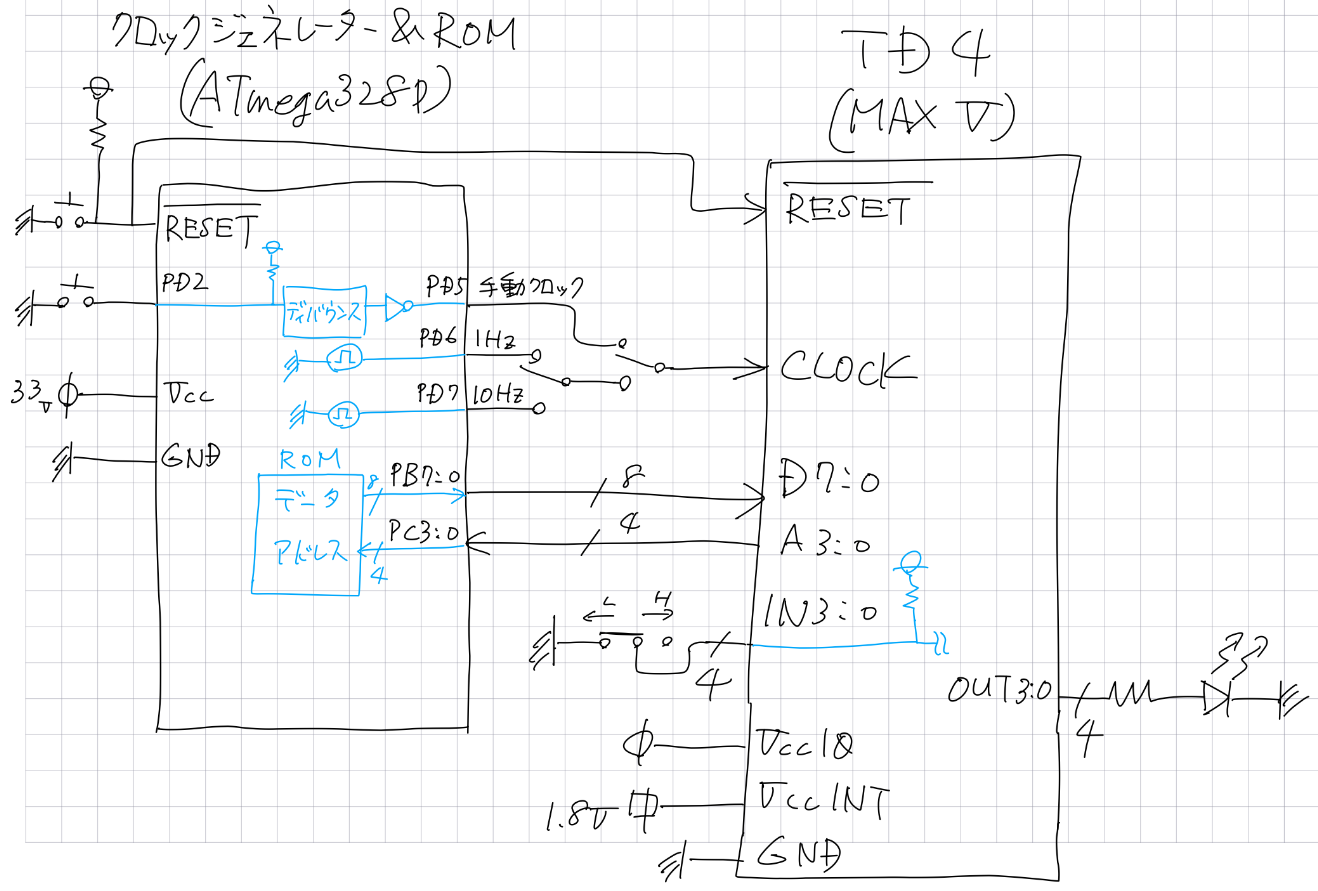 クロックジェネレーター&ROM
(ATmega328P)
TD4
(MAX V)
RESET
PD2
ディバウンス
PD5
手動クロック
PD6
1Hz
PD7
10Hz
33V
Vcc
GND
ROM
データ
8
PB7:0
8
アドレス
4
PC3:0
4
RESET
CLOCK
D7:0
A3:0
IN3:0
L
H
4
OUT3:0
4
VccIO
1.8V
VccINT
GND